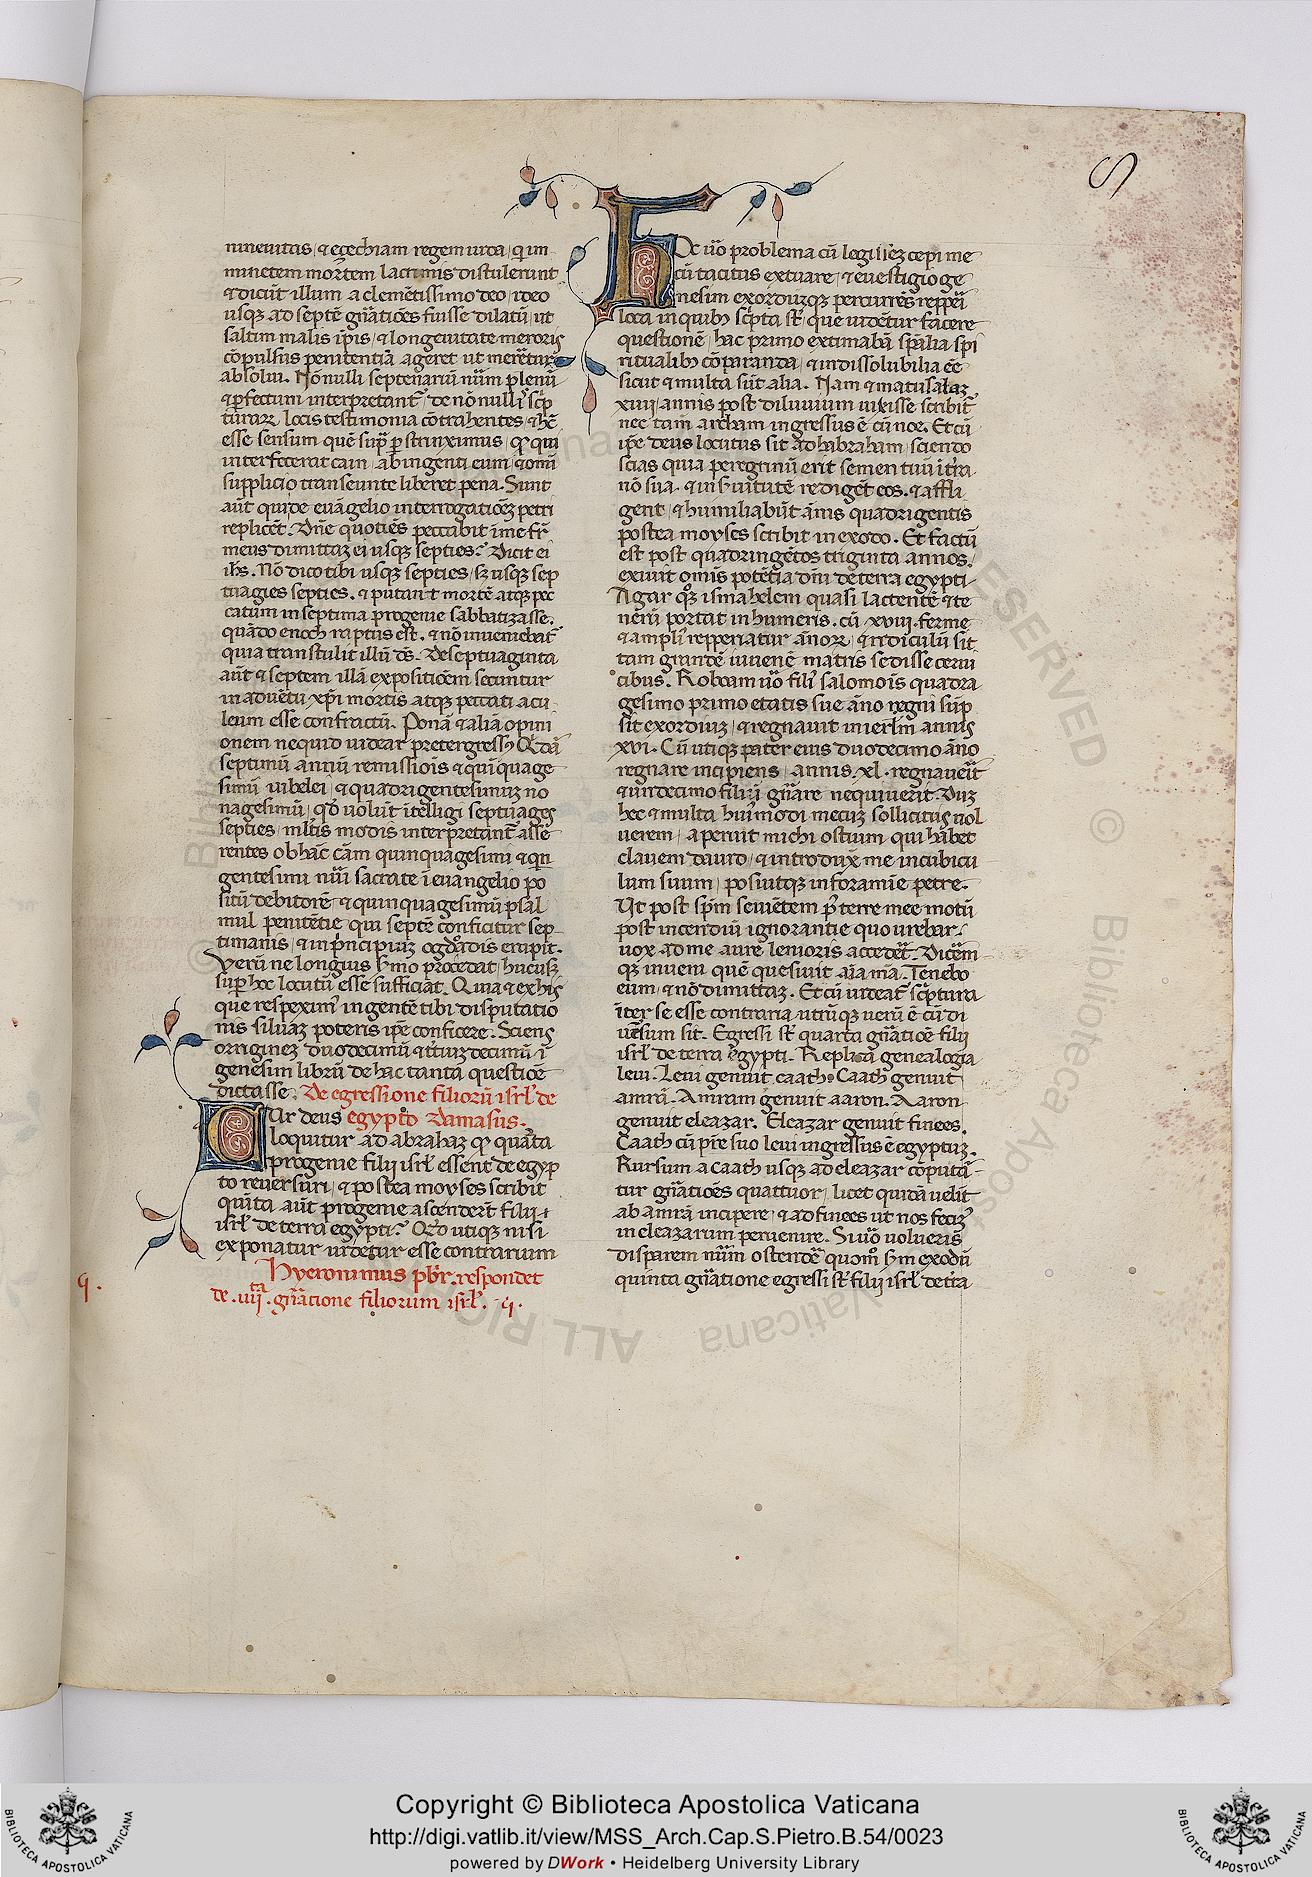 S
nineuitas / ⁊ eçechiam regem iuda / q̄ im
minẽtem mortem lacrimis distulerunt
⁊ dicūt illum a clemẽtissimo deo / ideo
usq; ad septẽ gñatiões fuisse dilatū / ut
saltim malis ip̄is / ⁊ longeuitate meroris
cōpulsus penitentiā ageret ut merẽtur
absolui. Nōnulli septenariū nūm plenū
⁊ ꝑfectum interpretant̄ / de nōnulli' sc̄p
turarꝝ locis testimonia cōtrahentes / ⁊ hc̄
esse sensum quē sup̄ ꝑstrinximus / qꝫ qui
interfecerat cain / ab ingenti eum / ⁊ om̄i
supplicio transeunte liberet pena. Sunt
aūt qui de euāgelio interrogatiōeꝫ petri
replicẽt. Dñe quotiẽs peccabit i me fr̄
meus dimittaꝫ ei usqꝫ septies? Dicit ei
ih̄s. Nō dico tibi usqꝫ septies / sꝫ usqꝫ sep
tuagies septies. ⁊ putant mortẽ atqꝫ pec
catum in septima progenie sabbatizasse.
quādo enoch raptus est. ⁊ nō inueniebat̄
quia transtulit illū d̄s. De septuaginta
aūt ⁊ septem illā expositiōem secuntur
in aduẽtu xp̄i mortis atqꝫ peccati acu
leum esse confractū. Ponā ⁊ aliā opini
onem ne quid uidear pretergress⁹ Qdā
septimū annū remissiois ⁊ quīquage
simū iubelei / ⁊ quadrigentesimuꝫ no
nagesimū / qđ uolūt itelligi septuages
septies / ml̄tis modis interpretant̄ asse
rentes ob hāc cām quinquagesimi ⁊ qn
gentesimi nūi sacrate i euangelio po
situ debitorẽ / ⁊ quinquagesimū psal
mul penitẽtie qui septẽ conficitur sep
timanis / ⁊ in p̄ncipiuꝫ ogdoadis erupit.
Verū ne longius s̄mo procedat / hucusqꝫ
sup̄ hoc locutū esse sufficiat. Quia ⁊ ex his
que respexim' ingentẽ tibi disputatio
nis siluaꝫ poteris ip̄e conficere. Sciens
origineꝫ duodecimū ⁊ t̄tiuꝫ decimū i
genesim librū de hac tantā questiōe
dictasse. De egressione filiorū isrl̄' de
CUr deus egypto Damasus.
loquitur ad abrahaꝫ qꝫ quarta
progenie filii isrl̄' essent de egyp
to reuersuri / ⁊ postea moyses scribit
quinta aūt progenie ascenderūt filii
isrl̄' de terra egypti? Qđ utiqꝫ nisi
exponatur uidetur esse contrarium
Hyeronimus p̄br. respondet
de .iiij.ta gñatione filiorum isrl̄'. q.
q.
HOc ūo problema cū legisseꝫ cepi me
cū tacitus extuare / ⁊ e uestigio ge
nesim exordiuꝫqꝫ percurrẽs repperi
loca in quib⁹ sc̄pta st̄ / que uidẽtur facere
questionẽ / hac primo extimabā sp̄alia spi
ritualib⁹ cōparanda / ⁊ indissolubilia eẽ
sicut ⁊ multa sūt alia. Nam ⁊ matusalaꝫ
xiiii annis post diluuium uixisse scribit̄
nec tam̄ archam ingressus ẽ cū noe. Et cū
ip̄e deus locutus sit ad habraham / sciendo
scias quia peregrinū erit semen tuū i t̄ra
nō sua. ⁊ in s̄uitutẽ redigẽt eos. ⁊ affli
gent / ⁊ humiliabūt ānis quadrigentis
postea moyses scribit in exodo. Et factū
est post quadringẽtos triginta annos.
exiuit omīs potẽtia dn̄i de terra egypti.
Agar qꝫ ismahelem quasi lactentẽ ⁊ te
nerū portat in humeris. cū .xviii. ferme
⁊ ampli' repperiatur ānorꝝ / ⁊ ridiculū sit
tam grandẽ iuuenẽ matris sedisse cerui
cibus. Roboam ūo fili' salomois quadra
gesimo primo etatis sue āno regni sūp
sit exordiuꝫ / ⁊ regnauit in ierl̄m annis
xvi. Cū utiqꝫ pater eius duodecimo āno
regnare incipiens / annis .xl. regnauerit
⁊ undecimo filiū gñare nequiuerit. Dūꝫ
hec ⁊ multa hui'modi mecuꝫ sollicitus uol
uerem / aperuit michi ostium qui habet
clauem dauid / ⁊ introdux̄ me in cubicu
lum suum / posuitqꝫ in foramīe petre.
Ut post spm̄ seuiẽtem p' terre mee motū
post incendiū ignorantie quo urebar.
uox ad me aure lenioris accedēt̄. Dicẽm
qꝫ inueni quẽ quesiuit aīa mā. Tenebo
eum / ⁊ nō dimittaꝫ. Et cū uideat̄ sc̄ptura
iter se esse contraria utrūqꝫ uerū ẽ cū di
uersum sit. Egressi st̄ quarta gñatiōe filii
isrl̄' de terra egypti. Replica genealogiā
leui. Leui genuit caath. Caath genuit
amrā. Amram genuit aaron. Aaron
genuit eleazar. Eleazar genuit finees.
Caath cū pr̄e suo leui ingressus ẽ egyptuꝫ.
Rursum a caath usqꝫ ad eleazar cōputā
tur gñatiões quattuor / licet quidā uelit
ab amrā incipere / ⁊ ad finees ut nos fecim'
in eleazarum peruenire. Si ūo uolueris
disparem nūm ostendẽ quom° s̄m exodū
quinta gñatione egressi st̄ filii isrl̄' de t̄ra
© Biblioteca Apostolica Vaticana
ALL RIGHTS RESERVED
Copyright © Biblioteca Apostolica Vaticana
http://digi.vatlib.it/view/MSS_Arch.Cap.S.Pietro.B.54/0023
powered by DWork • Heidelberg University Library
BIBLIOTECA APOSTOLICA VATICANA
BIBLIOTECA APOSTOLICA VATICANA